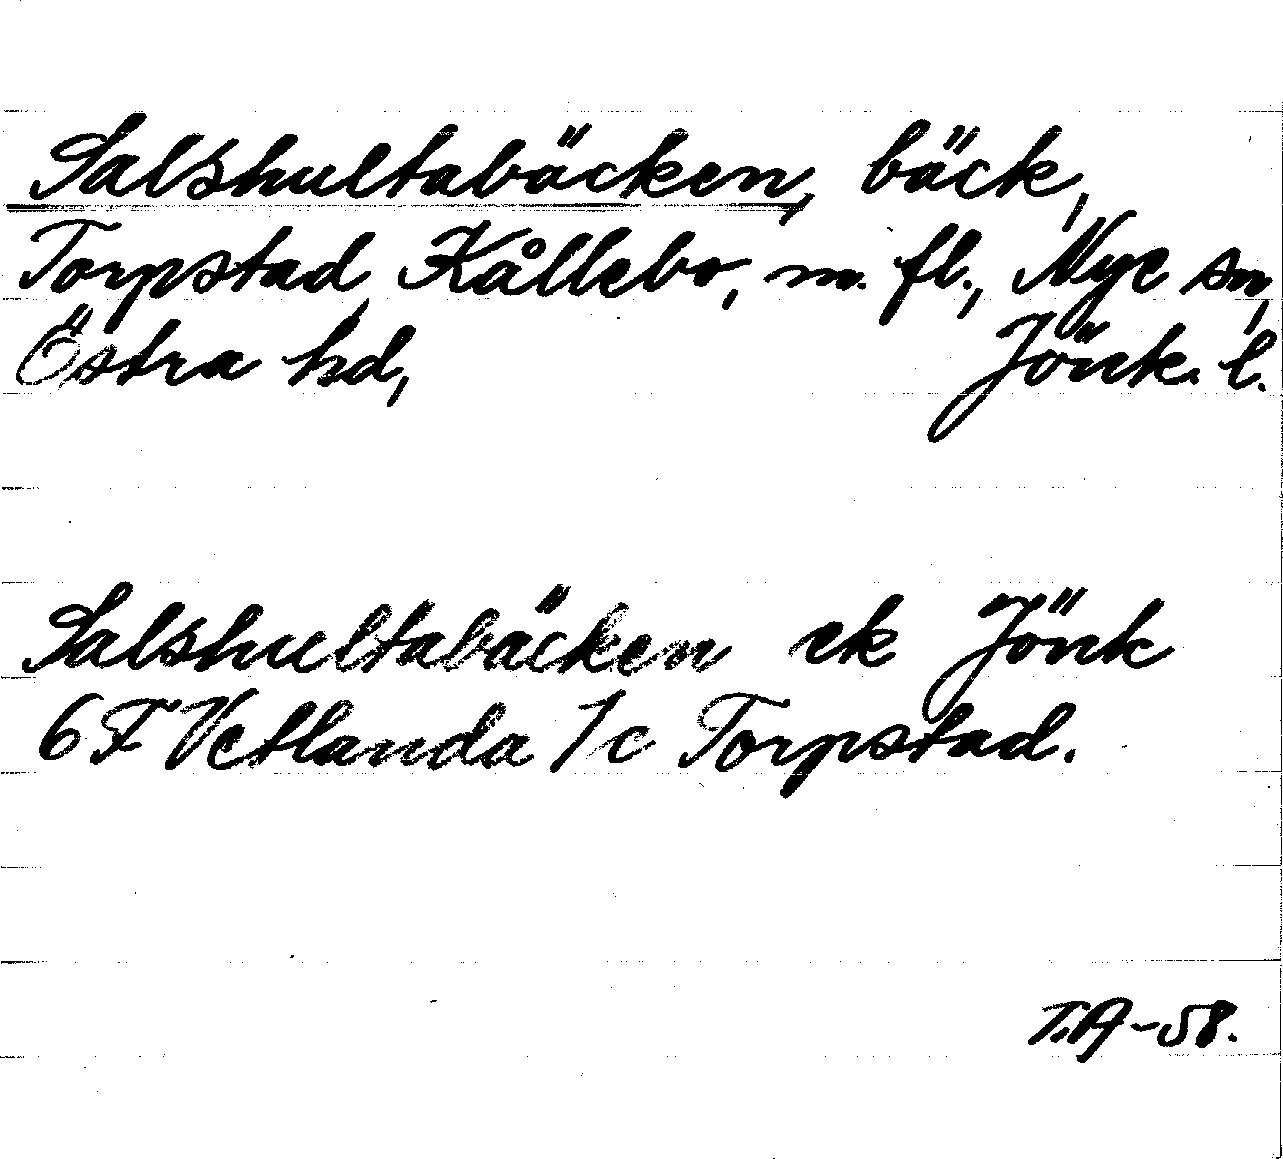 Salshultabäcken, bäck,
Torpstad, Kållebo, m. fl., Nye sn,
Östra hd, Jönk. l.
Salshultabäcken ek Jönk
6 F Vetlanda 1c Torpstad.
T.A-58.